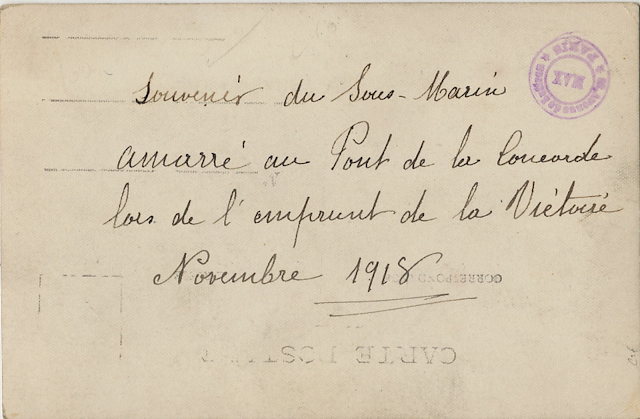 Souvenir du Sous-Marin
amarré au Pont de la Concorde
lors de l'emprunt de la Victoire
Novembre 1918
CORRESPOND
CARTE POSTALE
MAX
PARIS